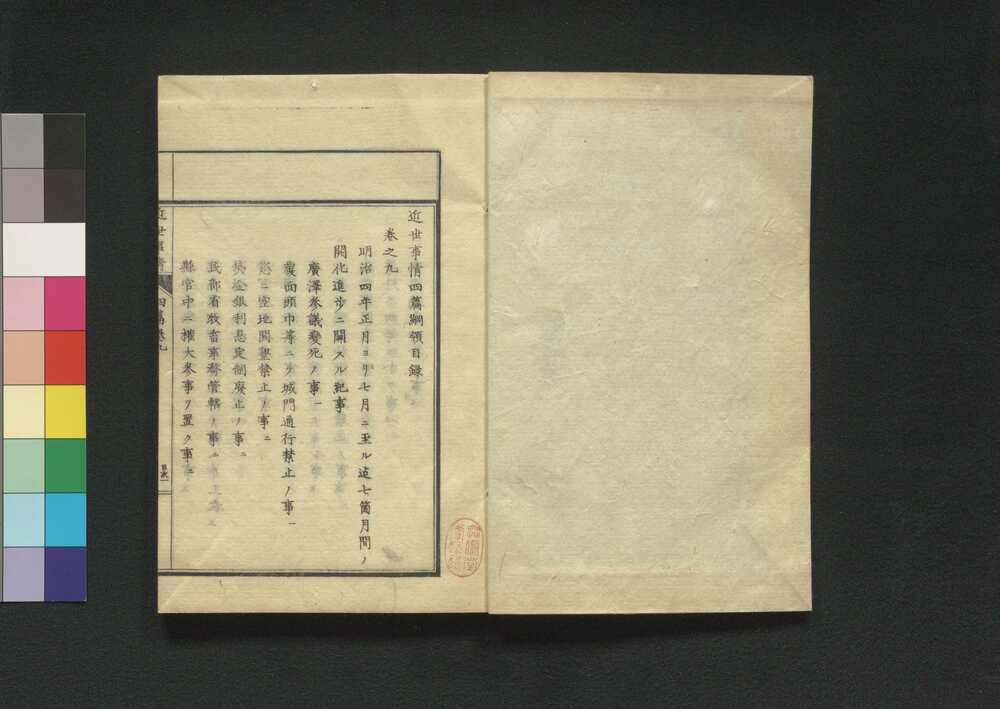 近世事情四篇綱領目録
巻之九
明治四年正月ヨリ七月ニ至ル迠七箇月間ノ
開化進歩ニ關スル紀事
廣澤参議変死ノ事一
覆面頭巾等ニテ城門通行禁止ノ事一
空地開墾禁止ノ事ニ
金銀利息定制廃止ノ事ニ
民部省牧畜事務管轄ノ事ニ
縣官中ニ権大参事ヲ置ク事ニ
近世事情
四篇巻九
目次一